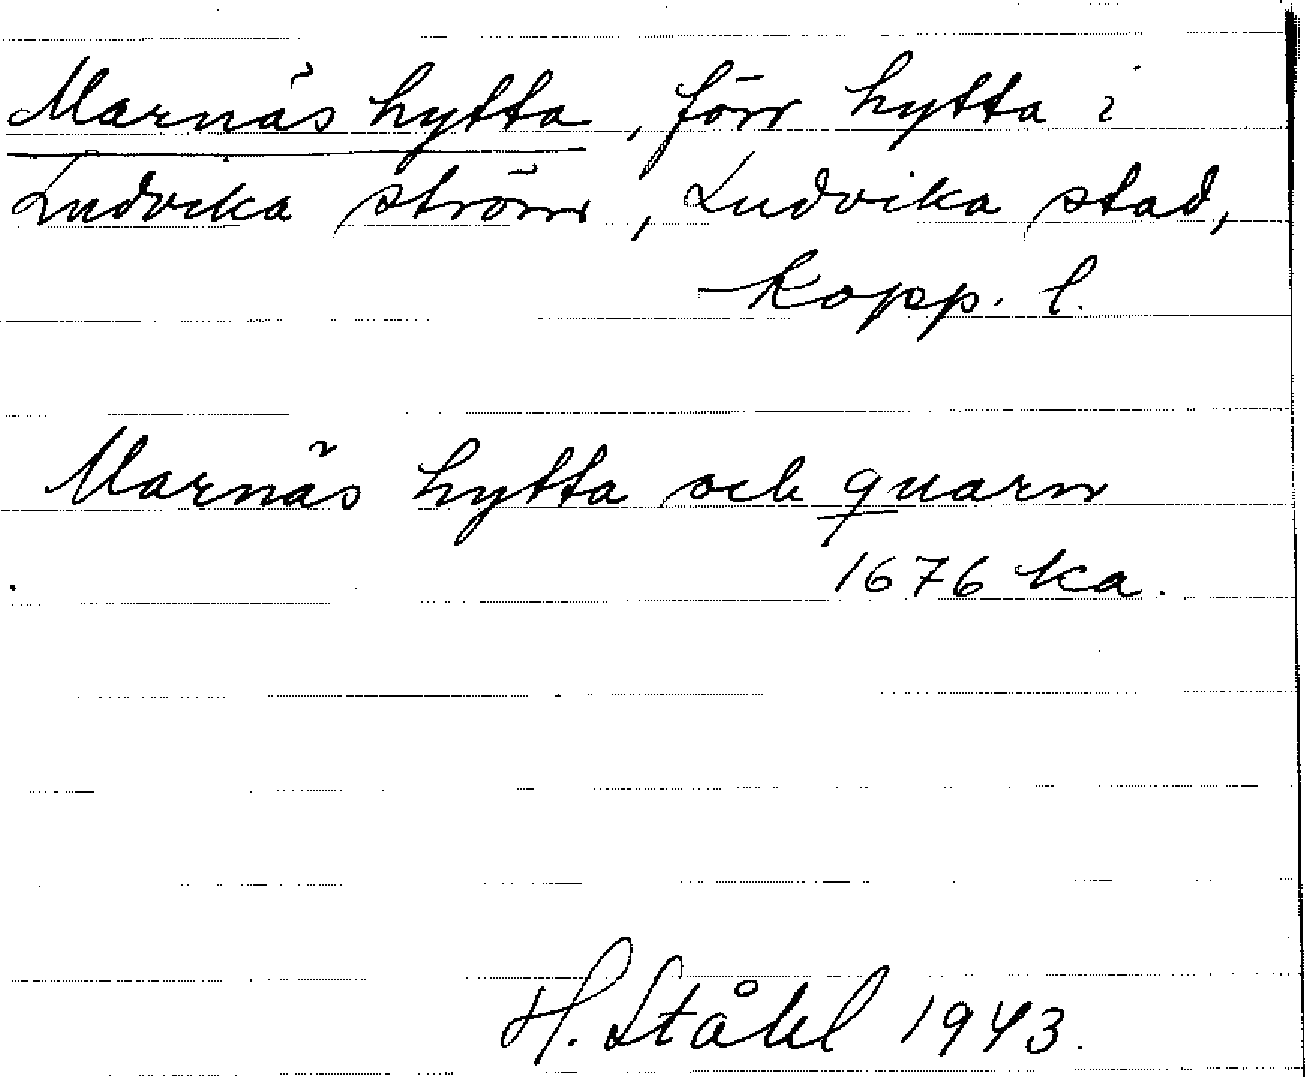 Marnäs hytta, förr hytta i
Ludvika ström, Ludvika stad,
Kopp. l.
Marnäs hytta och quarn
1676 ka.
H. Ståhl 1943.